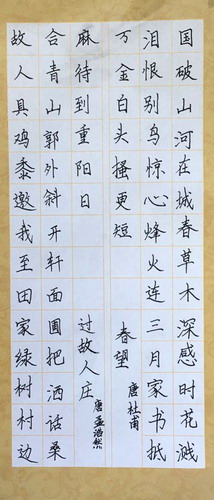 国破山河在城春草木深感时花溅
泪恨别鸟惊心烽火连三月家书抵
万金白头搔更短
春望
唐杜甫
故人具鸡黍邀我至田家绿树村边
合青山郭外斜开轩面圃把酒话桑
麻待到重阳日
过故人庄
唐孟浩然